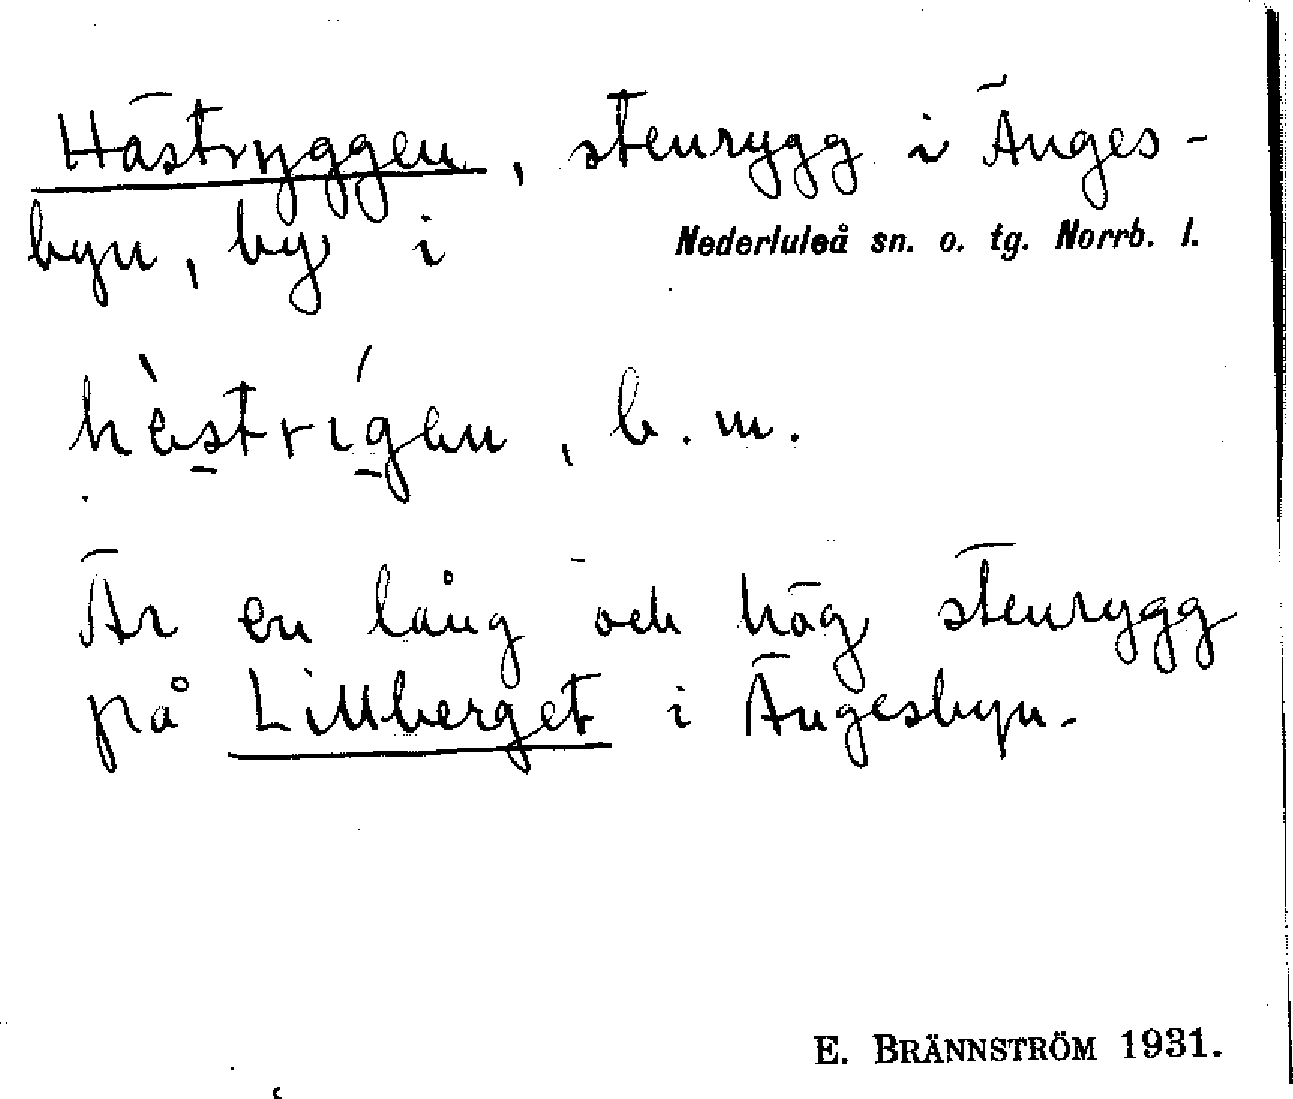 Hästryggen, stenrygg i Änges-
byn, by i Nederluleå sn. o. tg. Norrb. l.
hɛ̀strígen, b. m.
Är en lång och hög stenrygg
på Lillberget i Ängesbyn.
E. BRÄNNSTRÖM 1931.